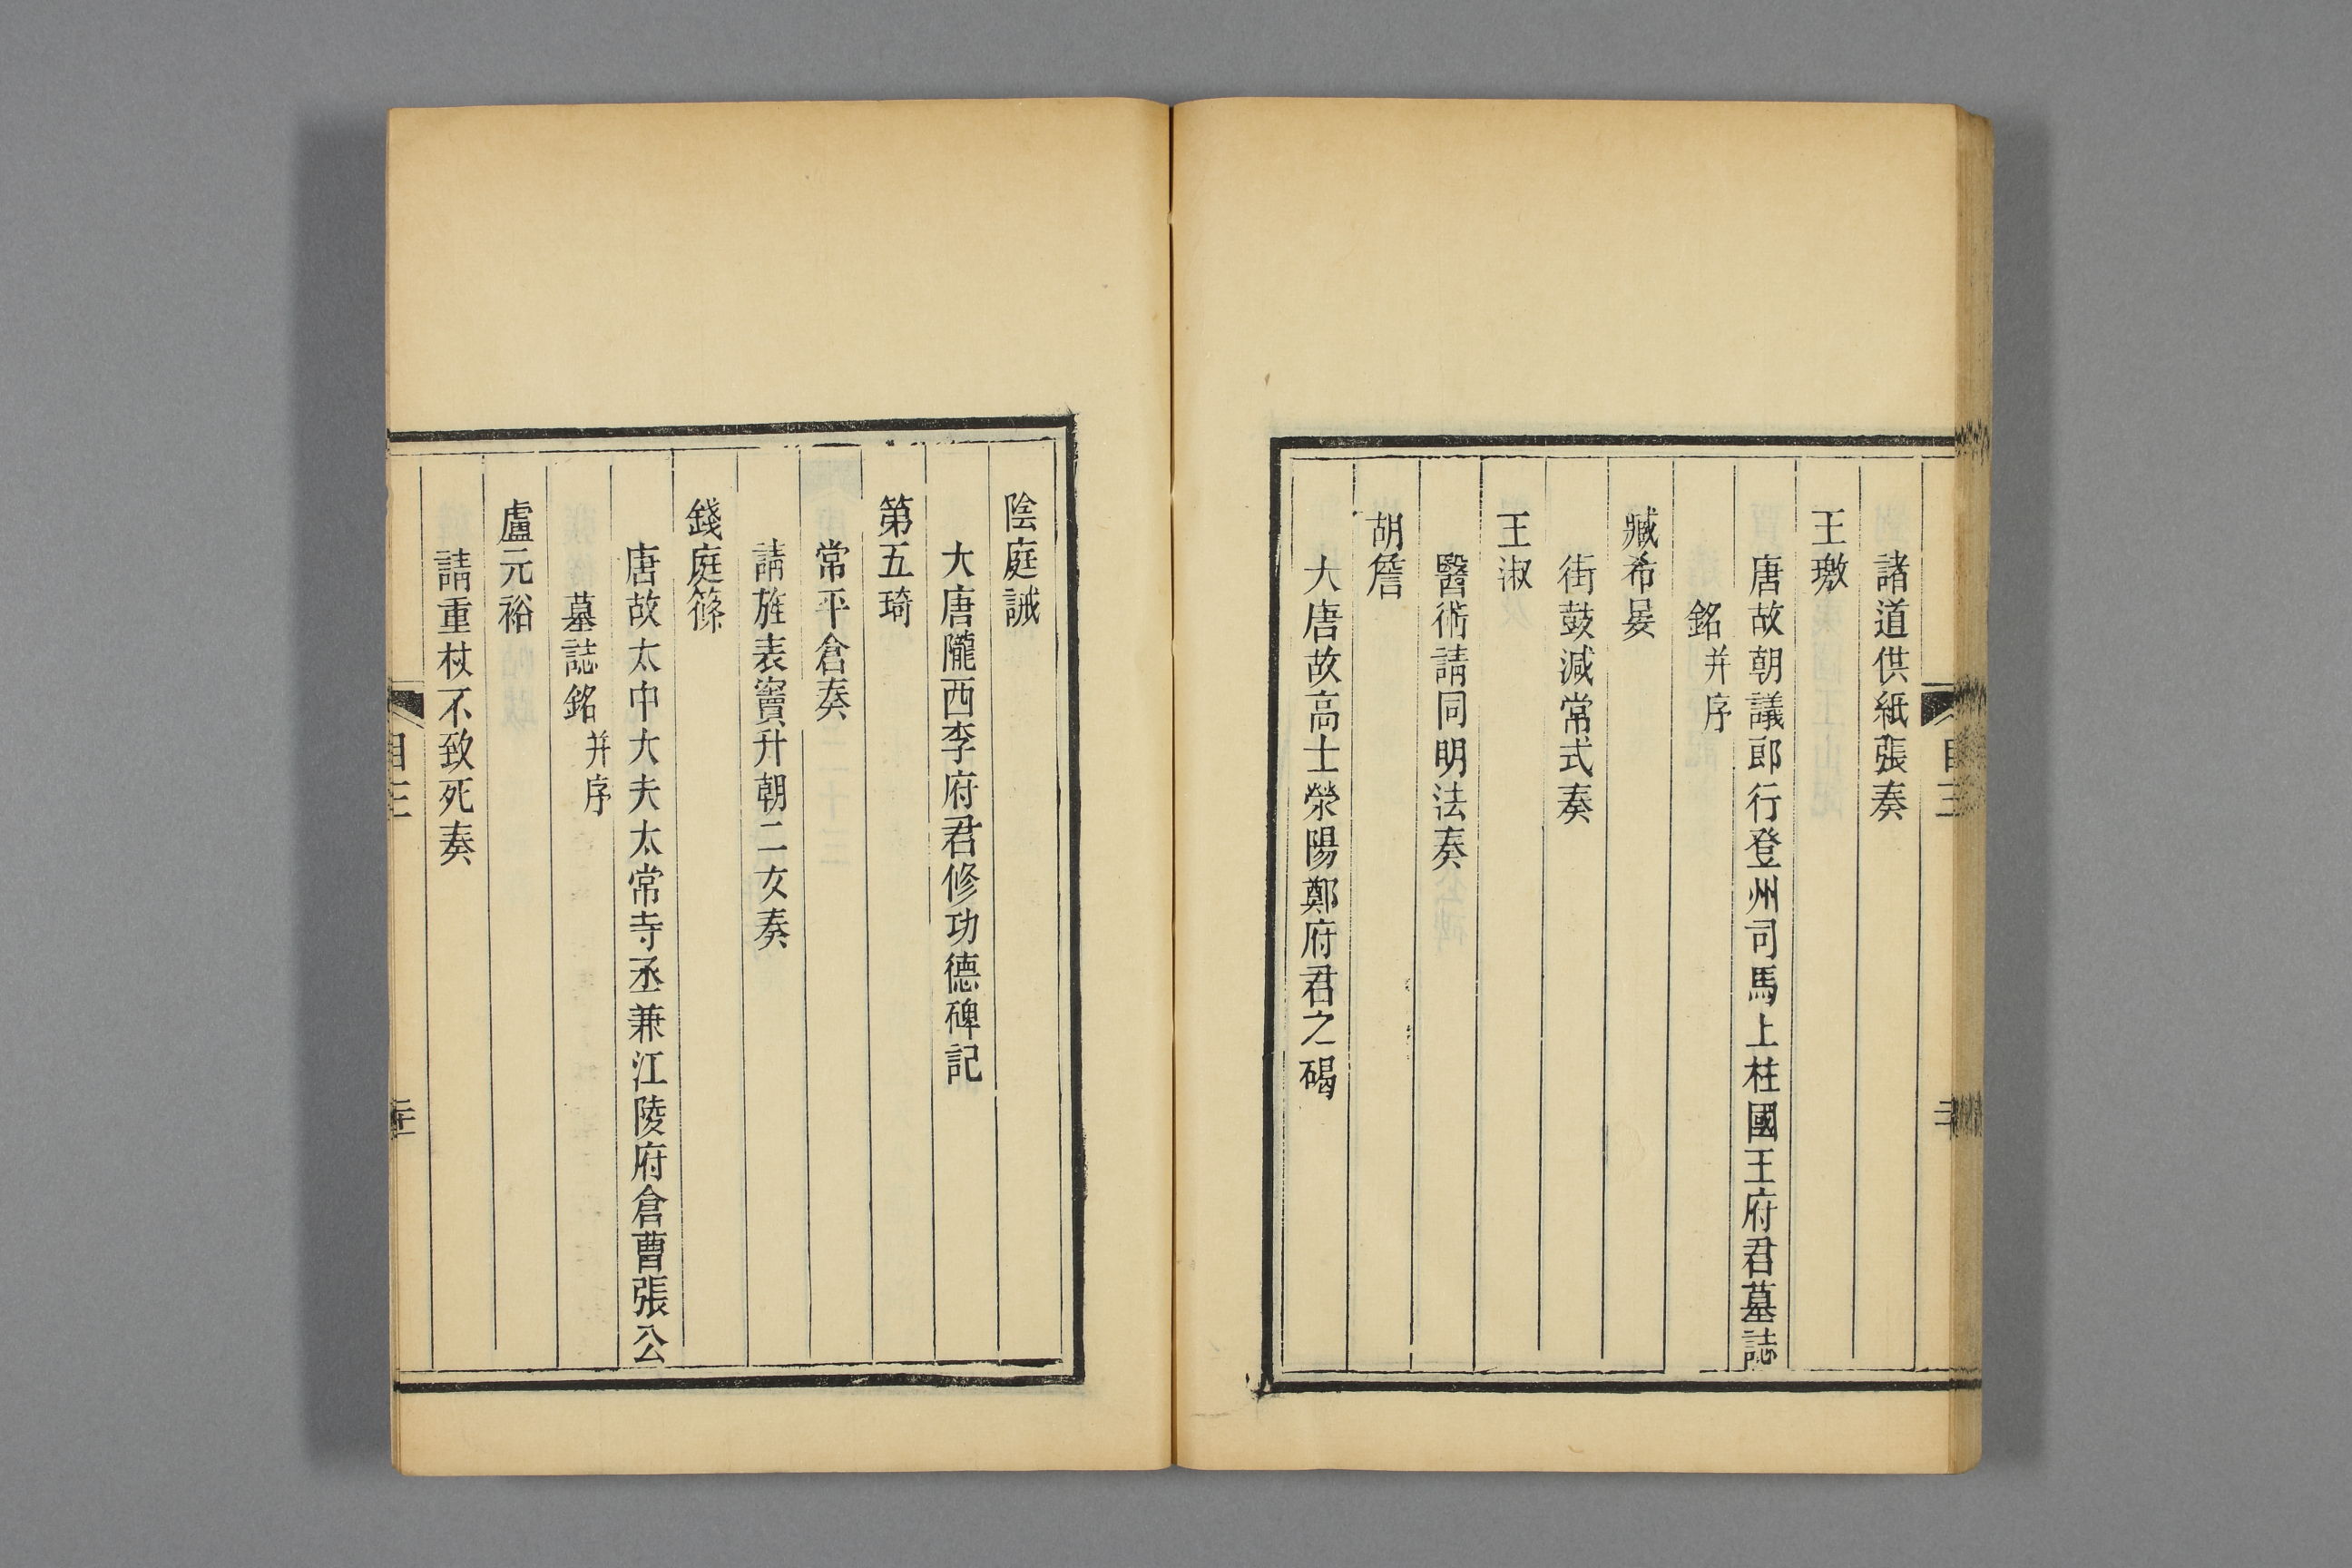 諸道供紙張奏
王璬
唐故朝議郎行登州司馬上柱國王府君墓誌
銘并序
臧希晏
街鼓減常式奏
王淑
醫術請同明法奏
胡詹
大唐故高士滎陽鄭府君之碣
陰庭誡
大唐隴西李府君修功德碑記
第五琦
常平倉奏
請旌表竇升朝二女奏
錢庭篠
唐故太中大夫太常寺丞兼江陵府倉曹張公
墓誌銘并序
盧元裕
請重杖不致死奏
目三